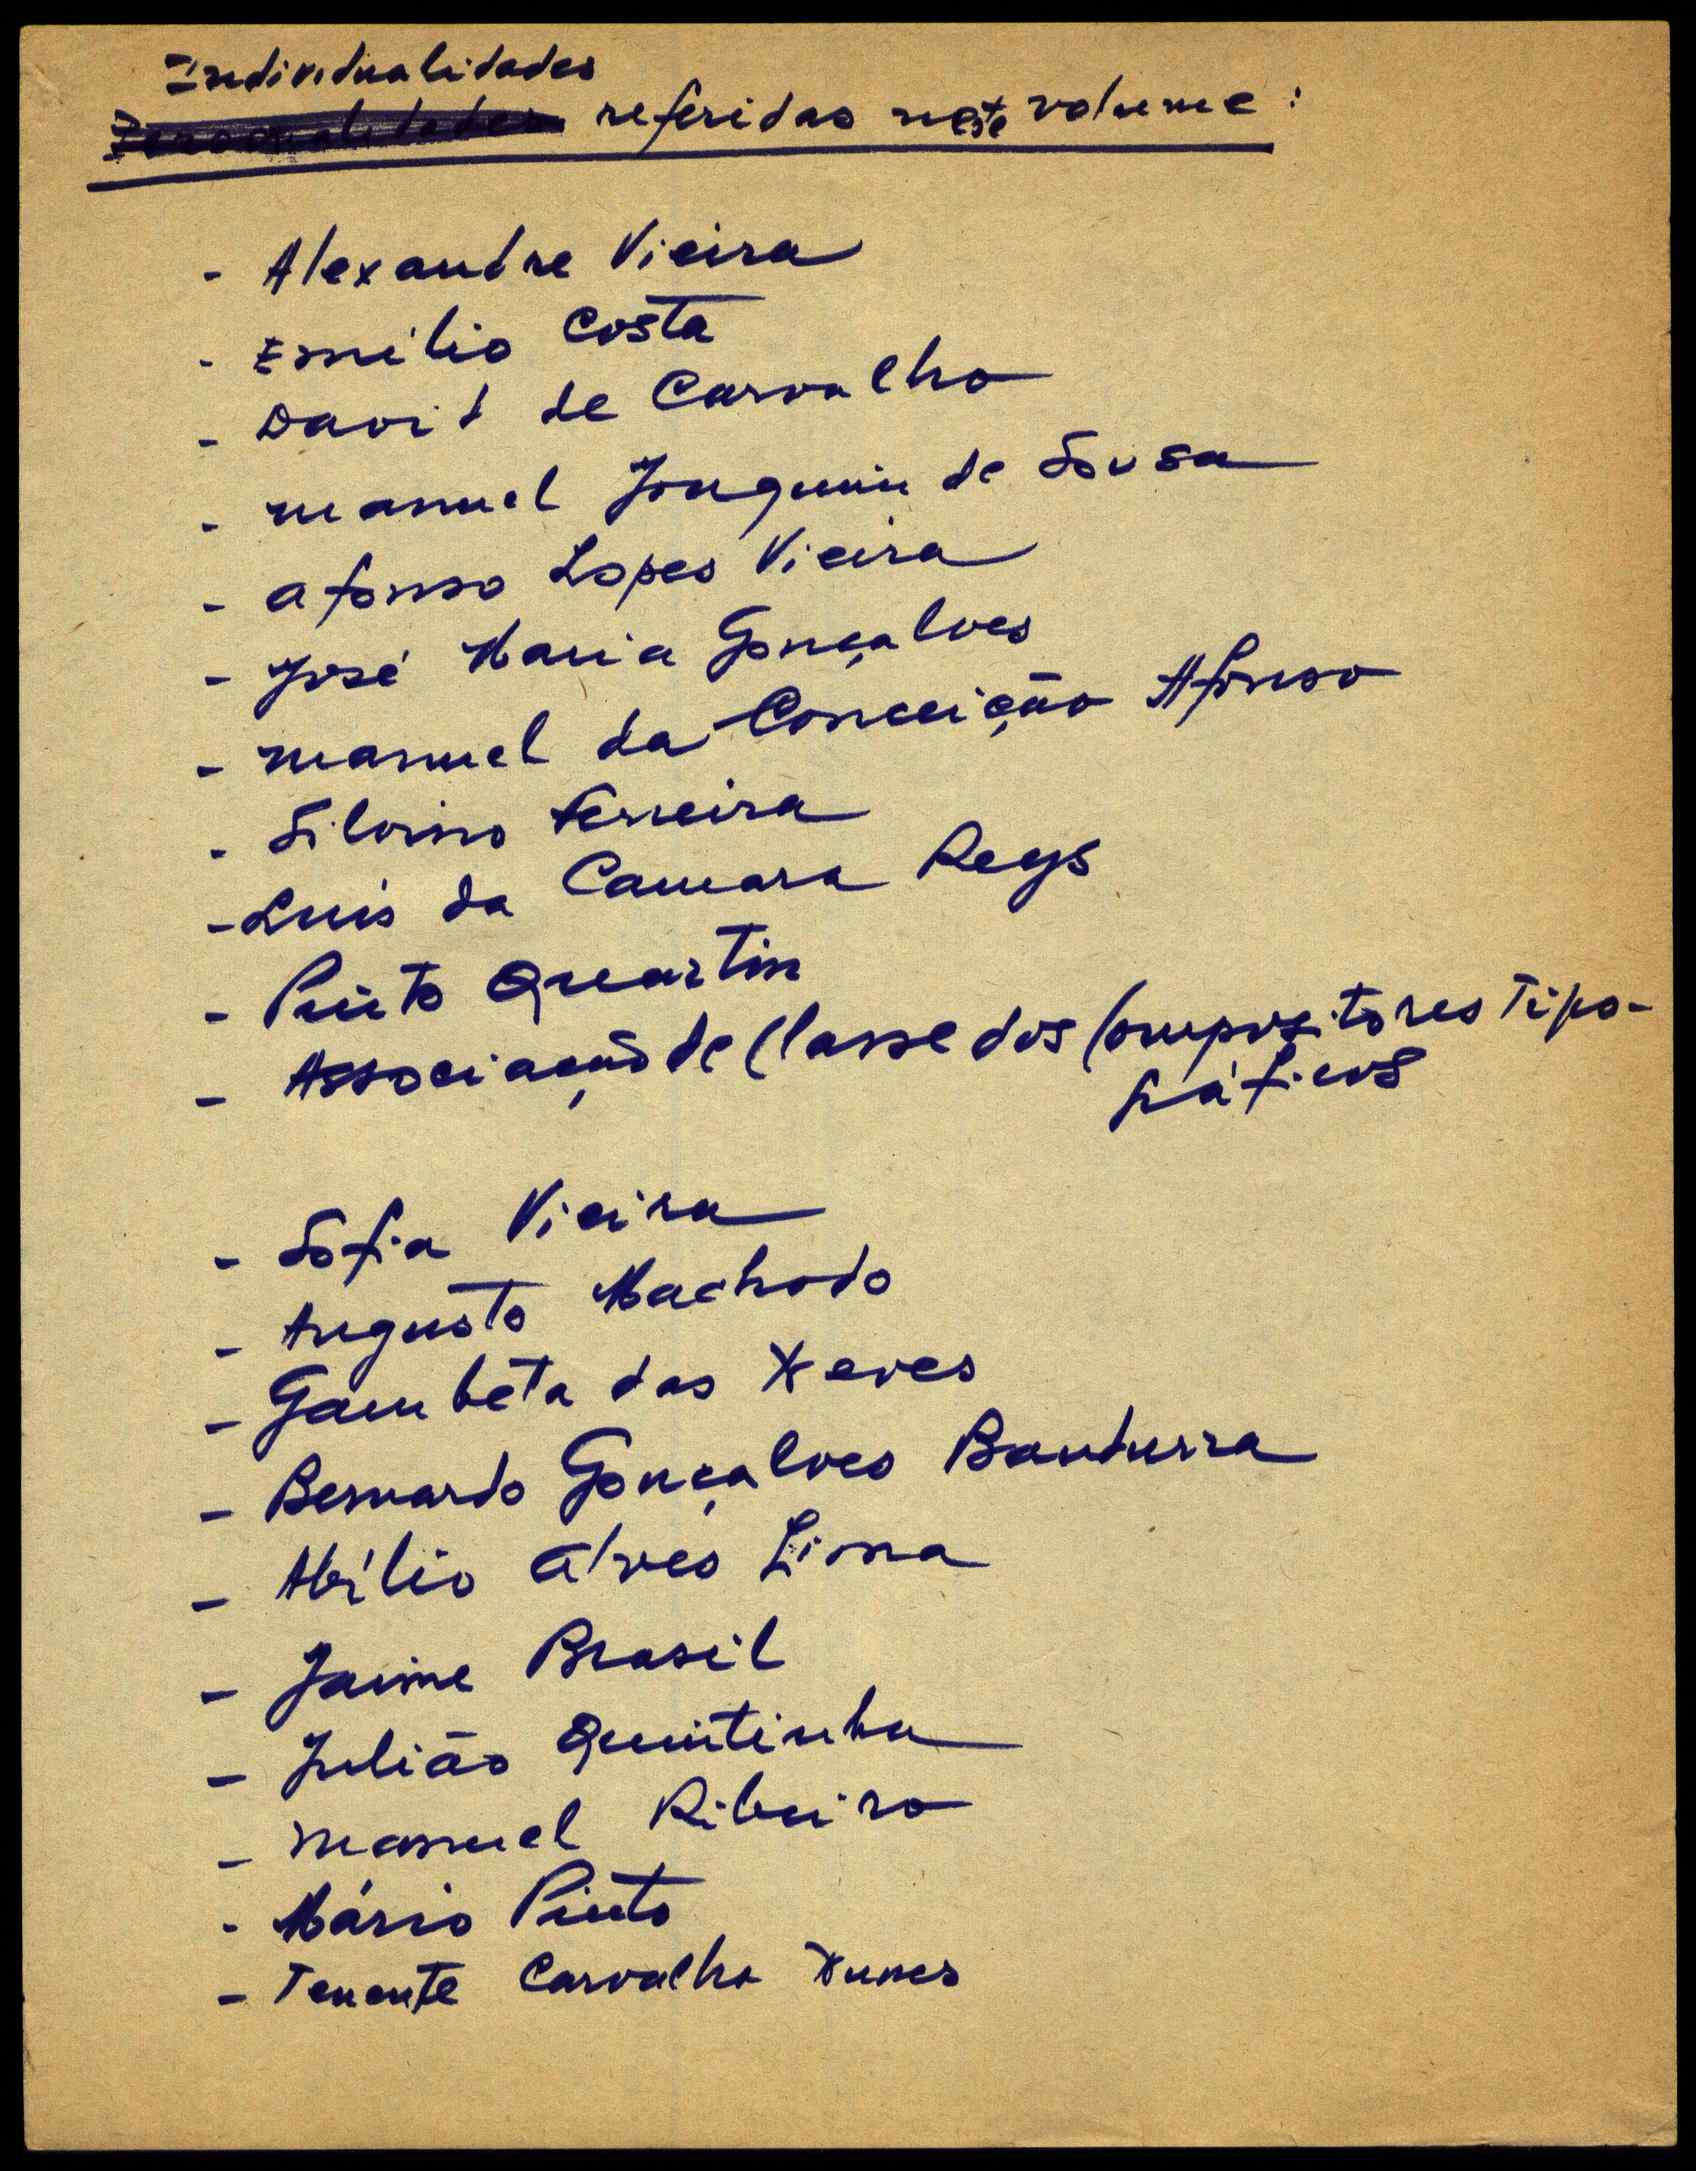 Individualidades
Personalidades referidas neste volume:
- Alexandre Vieira
- Emílio Costa
- David de Carvalho
- Manuel Joaquim de Sousa
- Afonso Lopes Vieira
- José Maria Gonçalves
- Manuel da Conceição Afonso
- Silvino Ferreira
- Luís da Camara Reys
- Pinto Quartin
- Associação de Classe dos Compositores Tipo-
gráficos
- Sofia Vieira
- Augusto Machado
- Gambeta das Neves
- Bernardo Gonçalves Bandurra
- Abílio Alves Lima
- Jaime Brasil
- Julião Quintinha
- Manuel Ribeiro
- Mário Pinto
- Tenente Carvalho Nunes